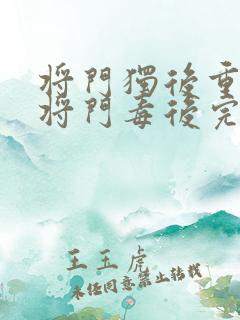 將門獨後重
將門毒後完
王玉虎
未经同意禁止转载